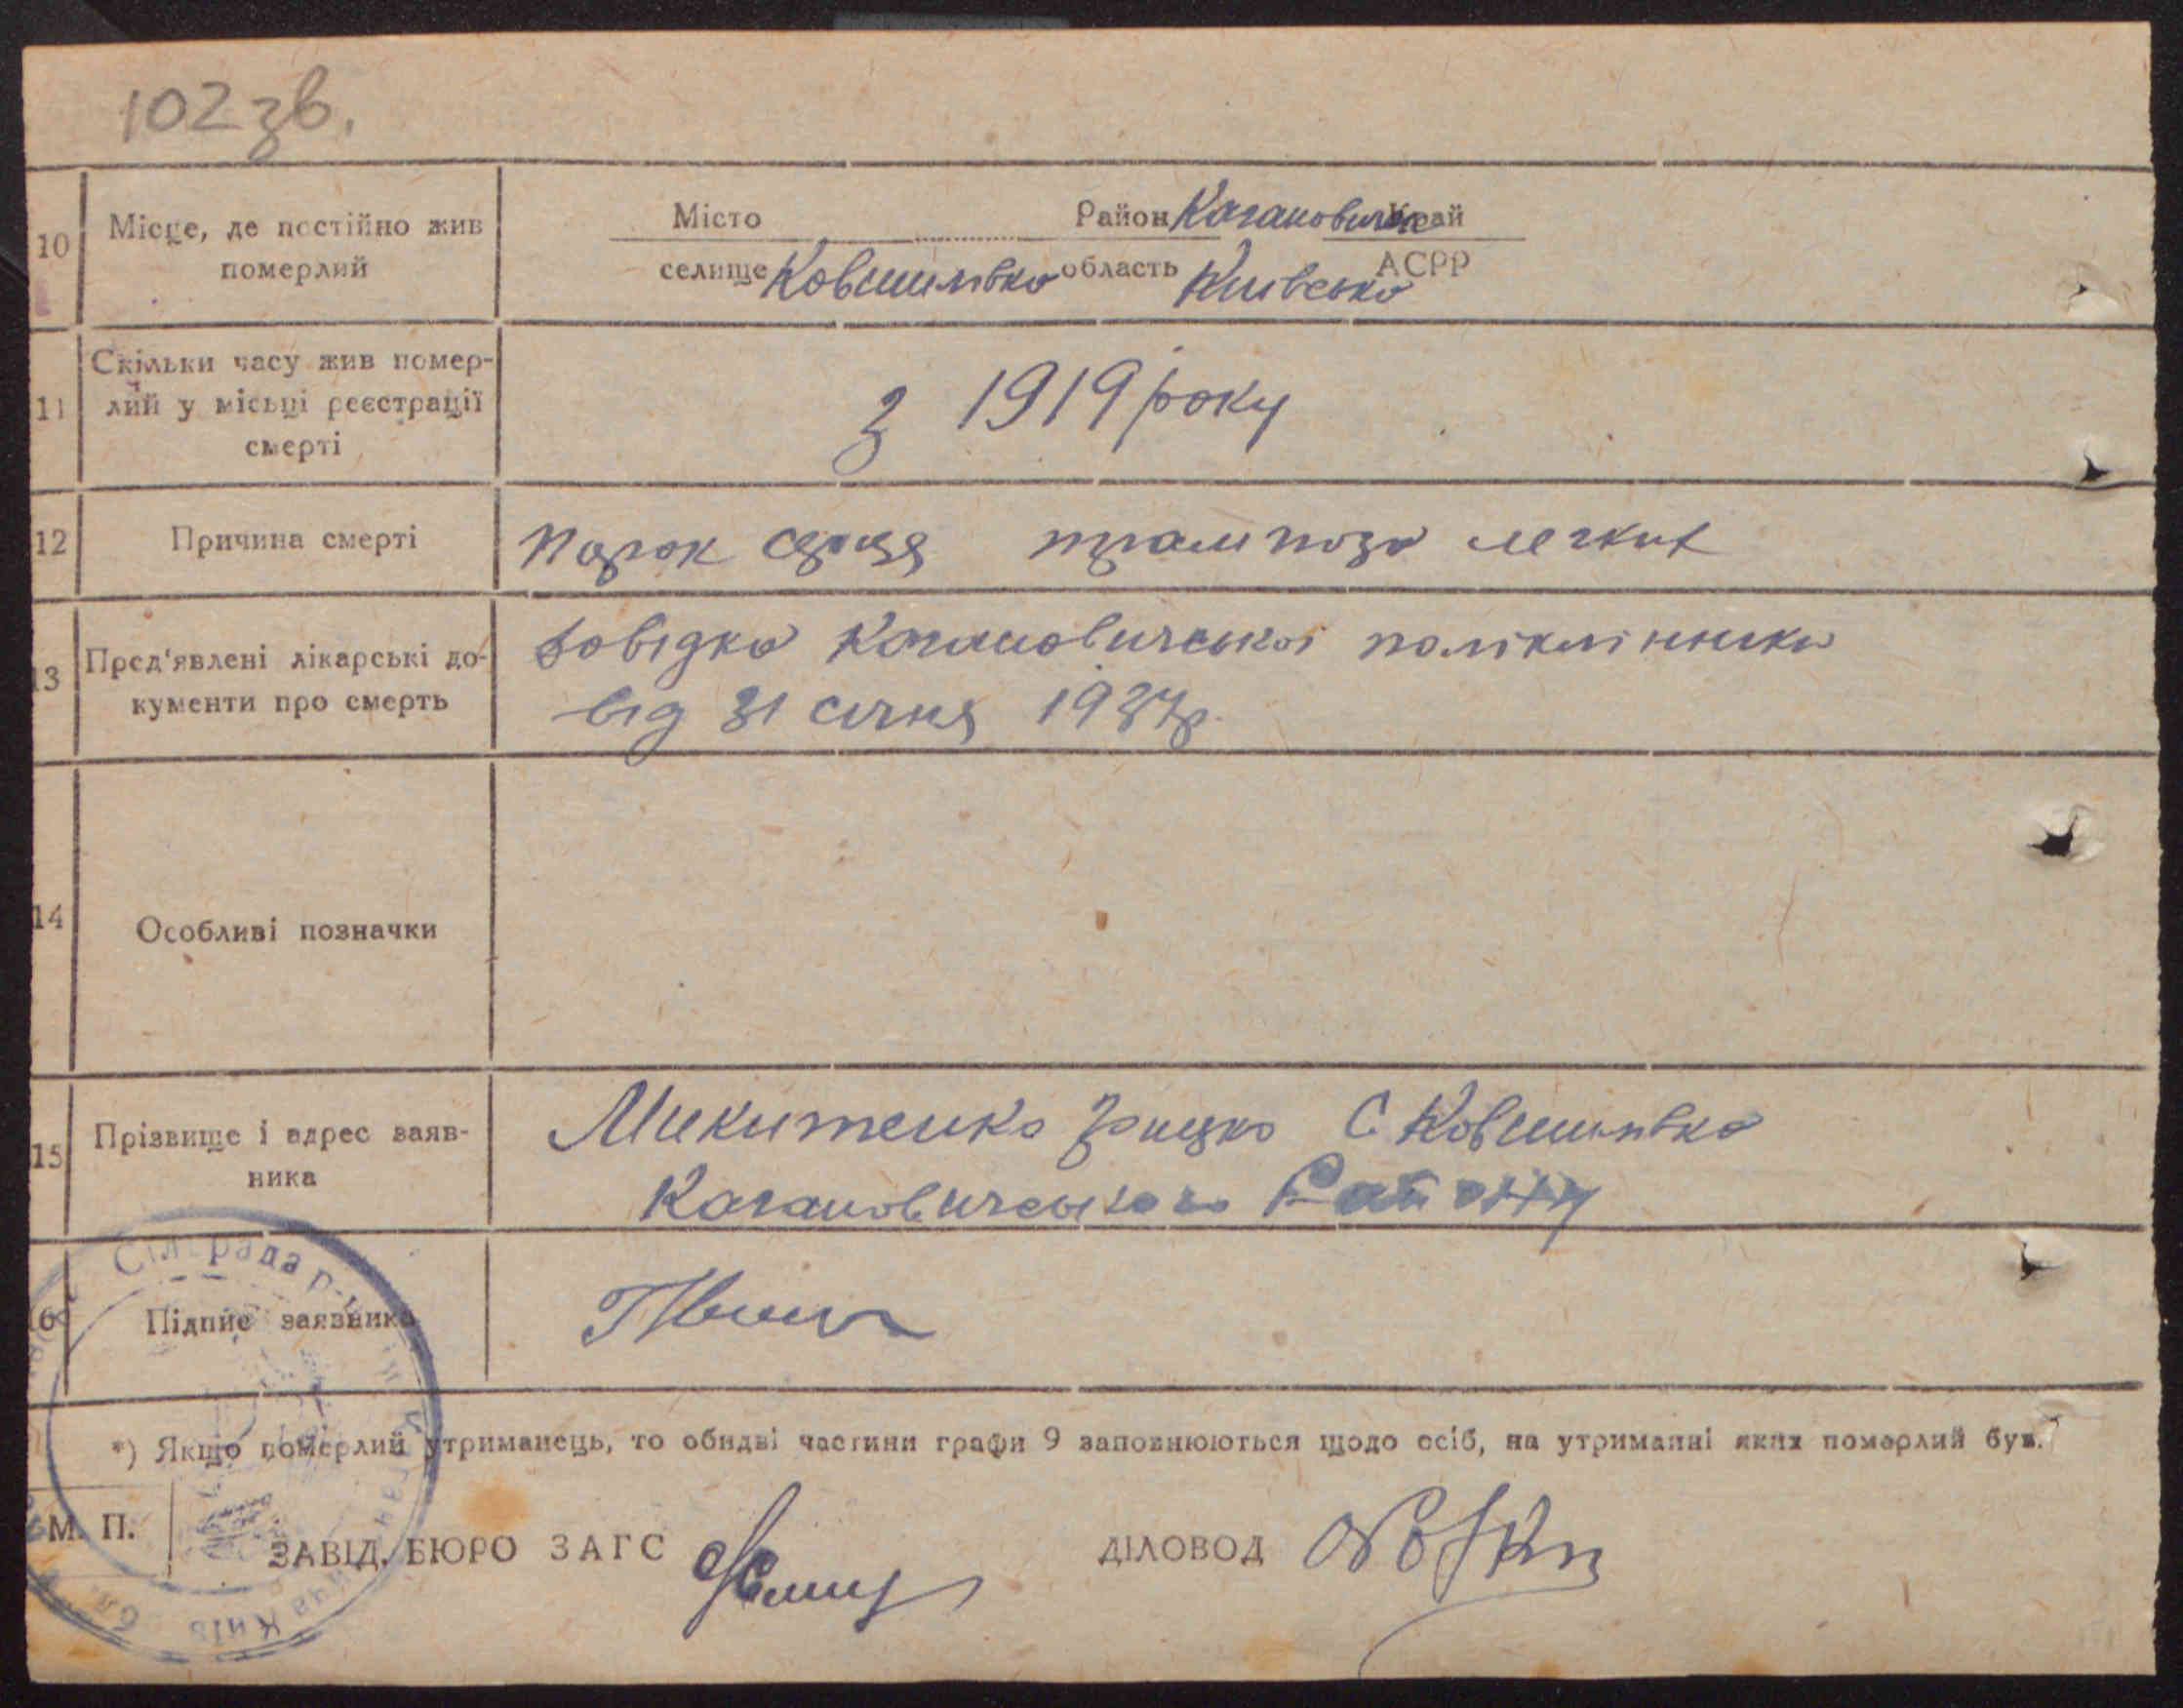 102 зв.
10 Місце, де постійно жив померлий
Місто Район Кагановича Край
селище Ковшилівка область Київська АСРР
11 Скільки часу жив помер-
лий у місьці реєстрації
смерті
з 1919 року
12 Причина смерті
Порок серця легких
13 Пред'явлені лікарські до-
кументи про смерть
Довідка Кагановичської поліклінники
від 31 січня 1937р.
14 Особливі позначки
15 Прізвище і адрес заяв-
ника
Микитенко Грицко С Ковшилівка
Кагановичського Району
Підпис заявника
*) Якщо померлий утриманець, то обидві частини графи 9 заповнюються щодо осіб, на утриманні яких померлий був.
М. П.
ЗАВІД. БЮРО ЗАГС
ДІЛОВОД